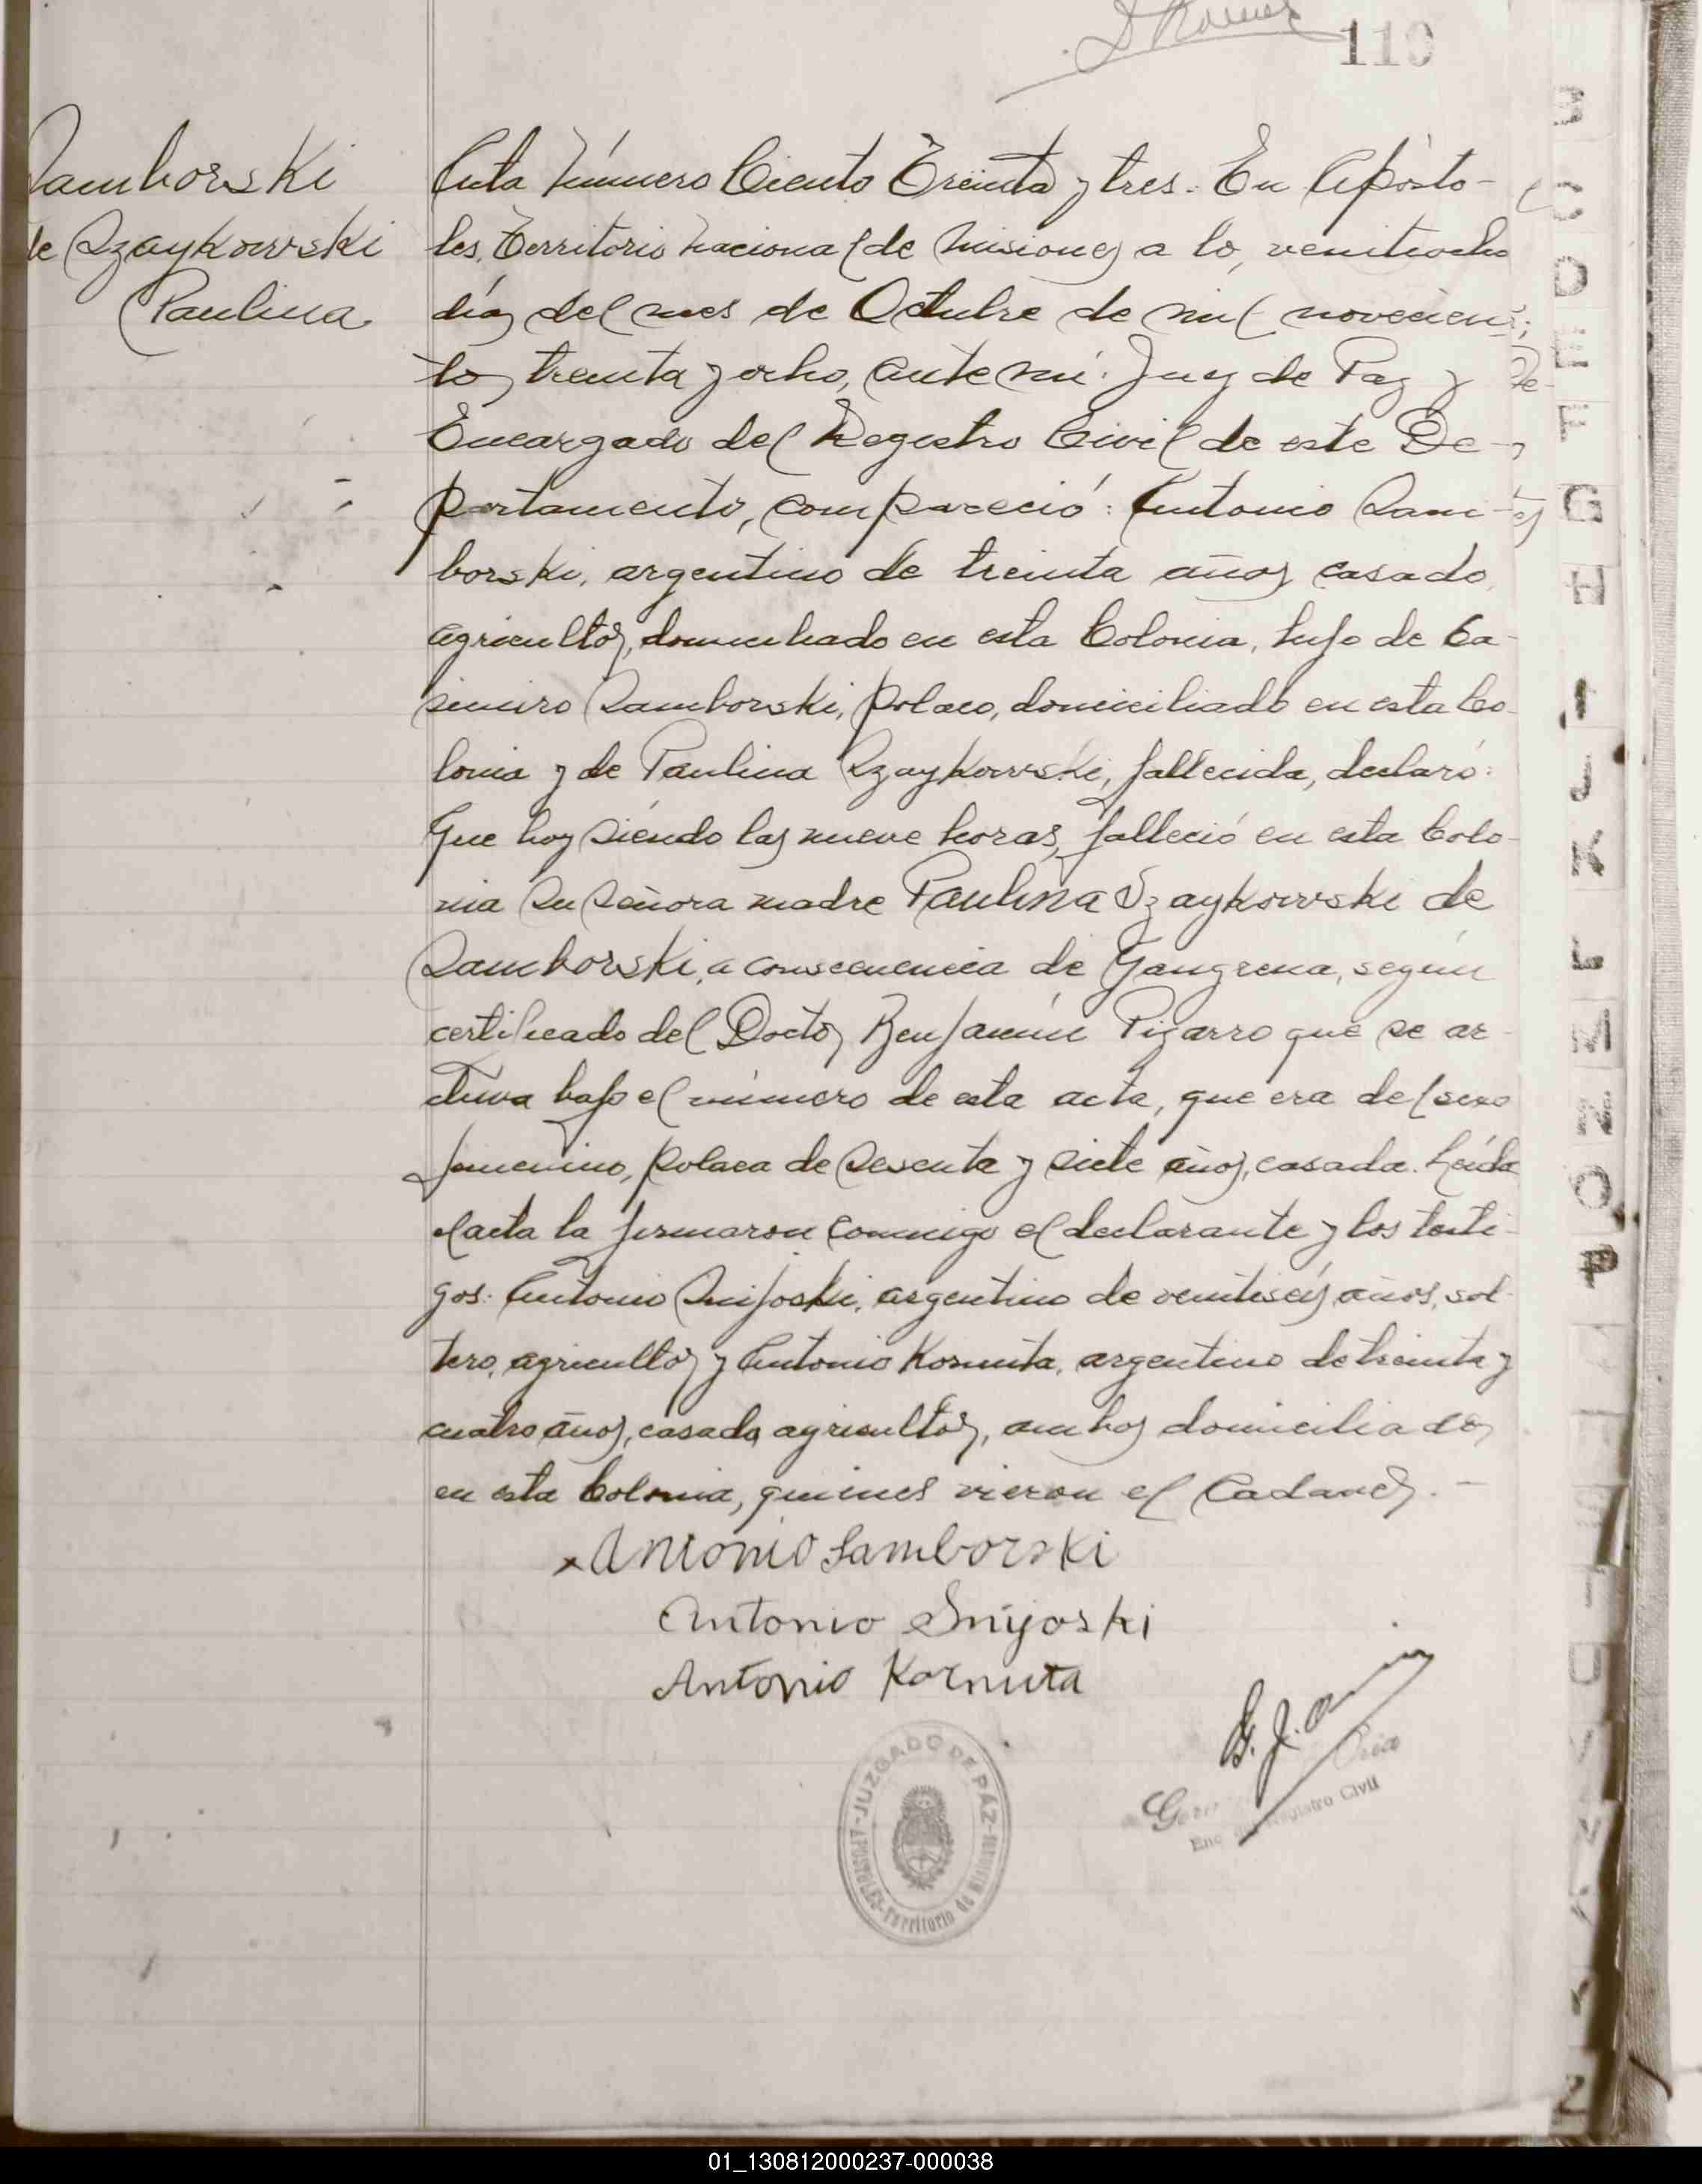 110
Samborski
de Szaykowski
Paulina
Acta Número Ciento Treinta y tres. En Apósto-
les, Territorio Nacional de Misiones a los veintiocho
días del mes de Octubre de mil novecien-
tos treinta y ocho, ante mí: Juez de Paz y
Encargado del Registro Civil de este De-
partamento, compareció: Antonio Sam-
borski, argentino de treinta años, casado,
agricultor, domiciliado en esta Colonia, hijo de Ca-
simiro Samborski, polaco, domiciliado en esta Co-
lonia y de Paulina Szaykowski, fallecida, declaró:
Que hoy siendo las nueve horas, falleció en esta Colo-
nia su señora madre Paulina Szaykowski de
Samborski, a consecuencia de Gangrena, según
certificado del Doctor Benjamín Pizarro que se ar-
chiva bajo el número de esta acta, que era del sexo
femenino, polaca de sesenta y siete años, casada. Leída
el acta la firmaron conmigo el declarante y los testi-
gos: Antonio Snijoski, argentino de veintiseis años, sol-
tero, agricultor y Antonio Kornuta, argentino de treinta y
cuatro años, casado, agricultor, ambos domiciliados
en esta Colonia, quienes vieron el Cadaver. -
x Antonio Samborski
Antonio Snijoski
Antonio Kornuta
JUZGADO DE PAZ
APOSTOLES - Territorio de Misiones
Registro Civil
B C D E F G H I J K L M N O P
01_130812000237-000038